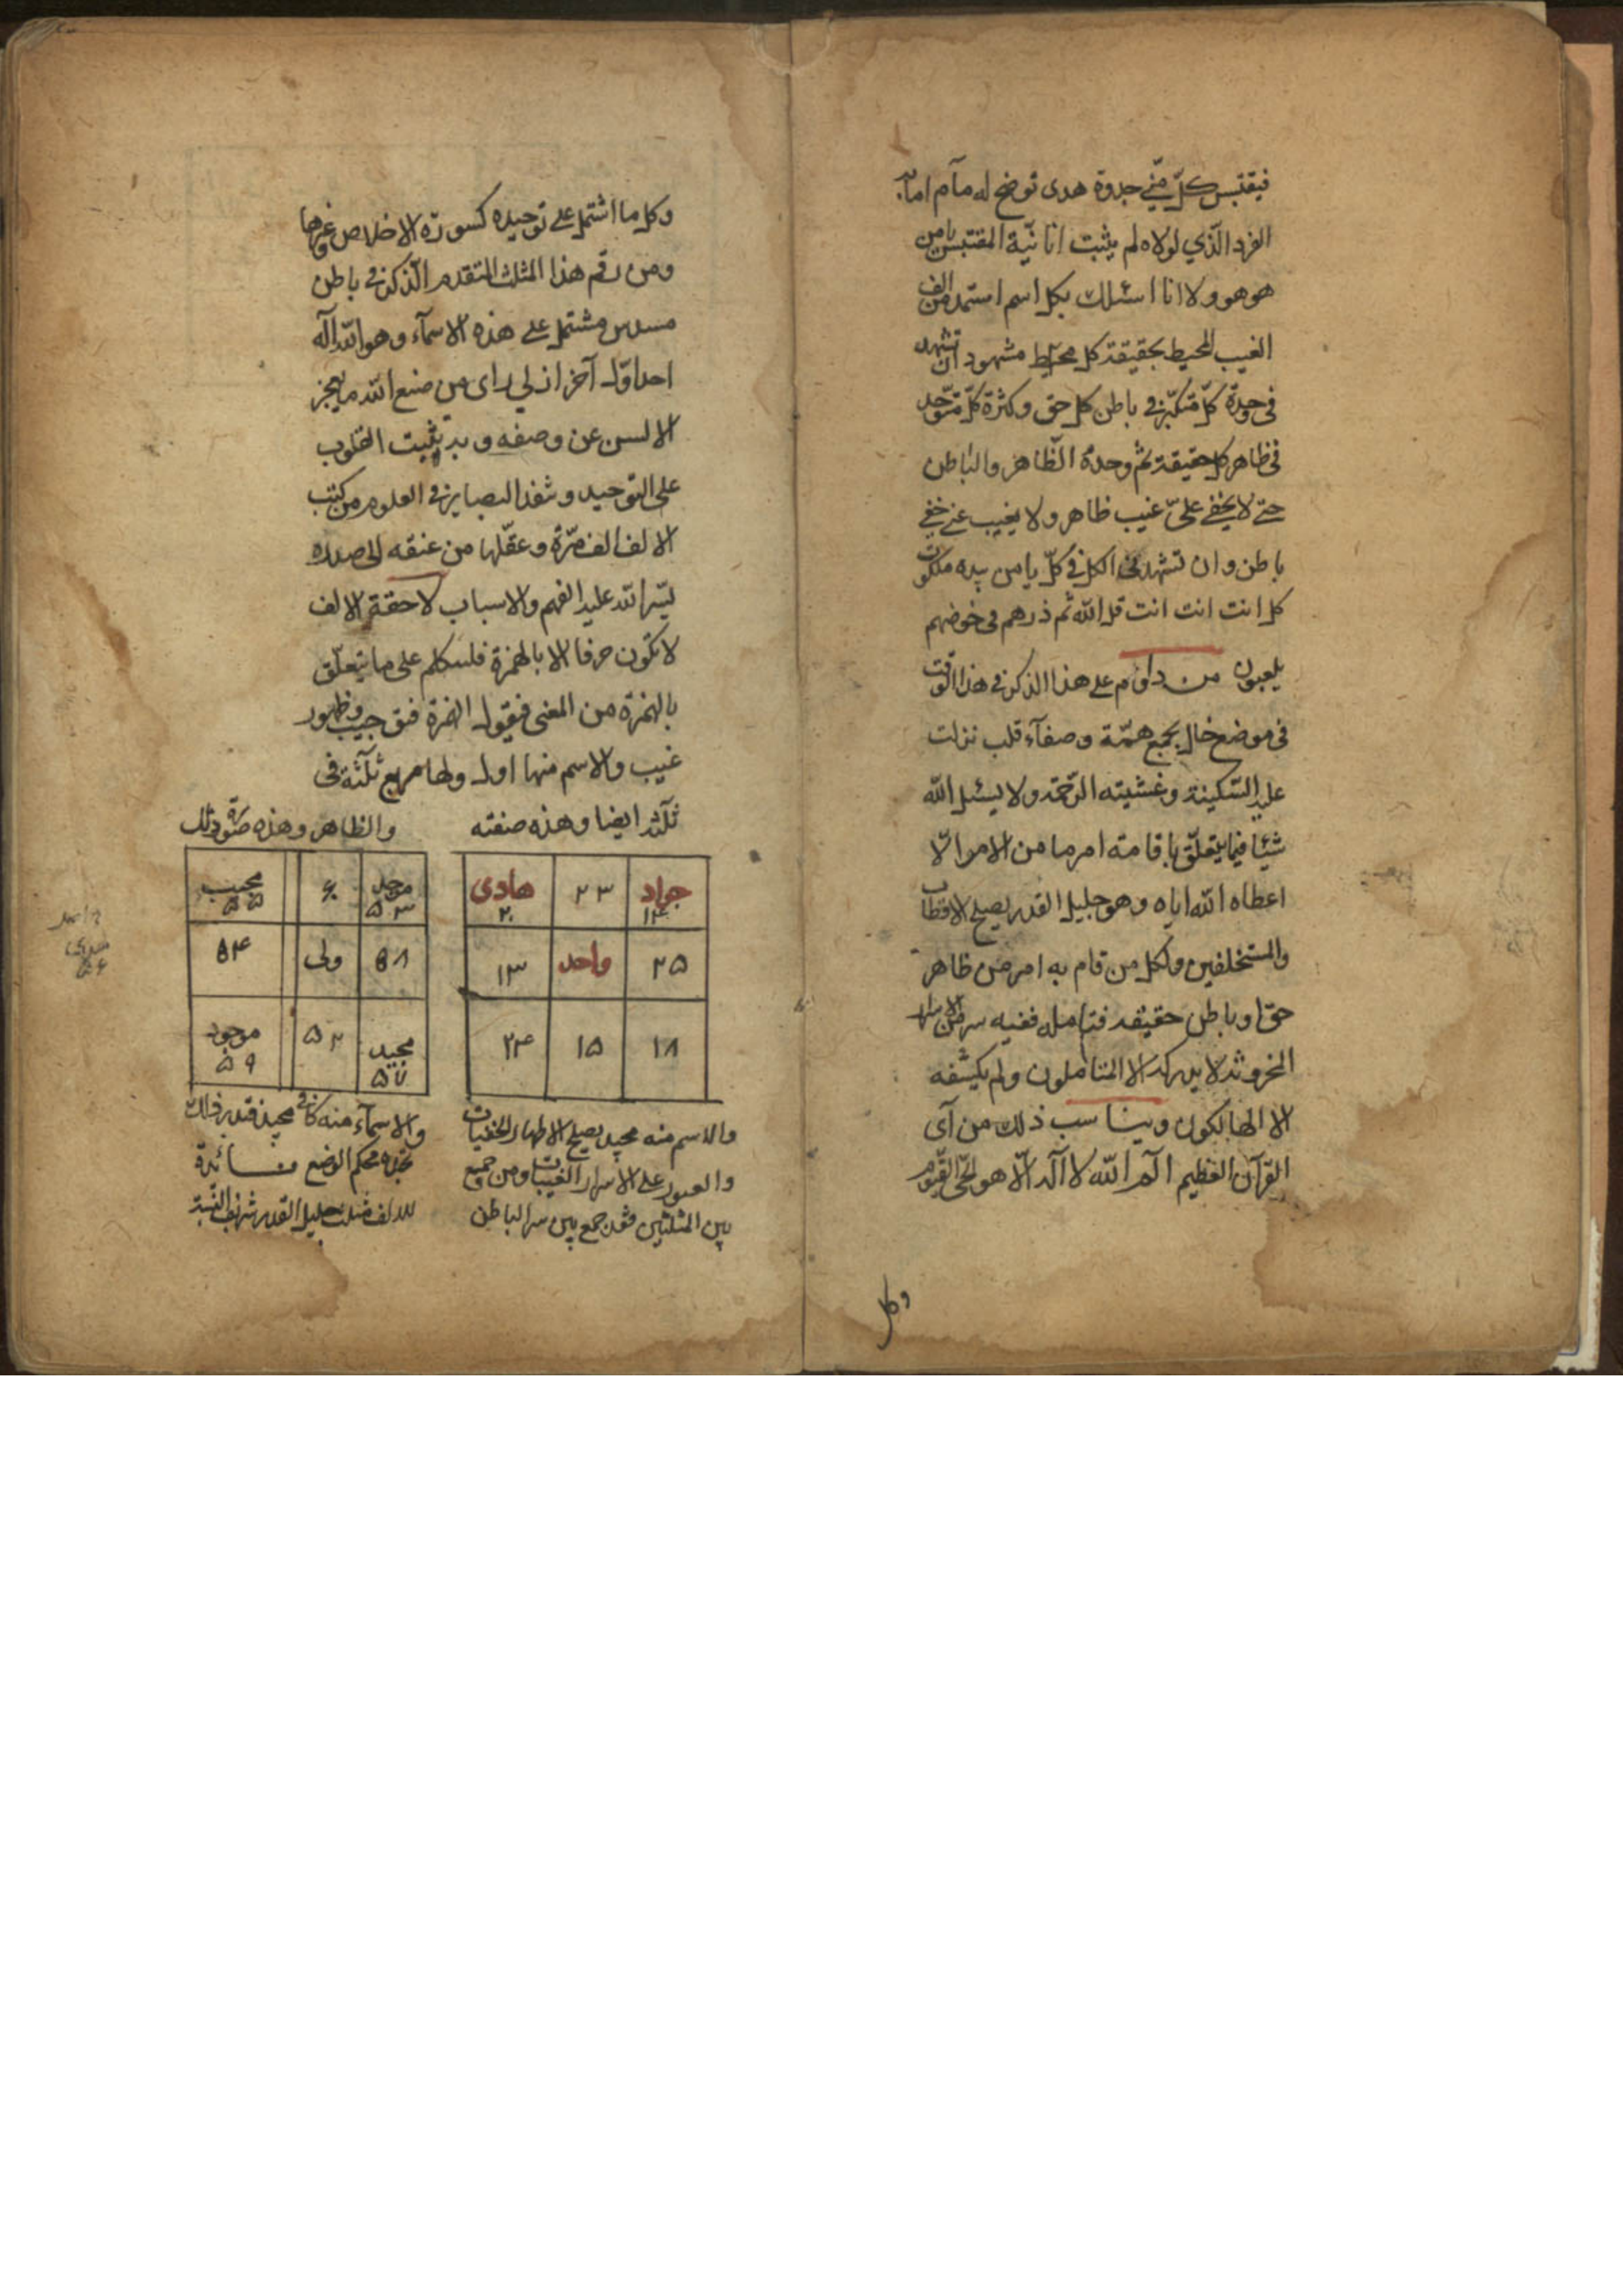 فيقتبس كلّ منّي جدوة هدى توضح له مآم امام
الفرد الّذي لولاه لم يثبت انانيّة المقتبس يا من
هو هو ولا انا اسئلك بكل اسم استمد من الف
الغيب المحيط بحقيقة كل محيط مشهود ان تشهد
في وحدة كلّ متكثّر في باطن كل حق وكثرة كلّ متوحّد
في ظاهر كل حقيقة ثم وحدة الظّاهر والباطن
حتى لا يخفى علىّ غيب ظاهر ولا يغيب عنى خفى
باطن وان تشهدنى الكل في كلّ يا من بيده ملكوت
كل انت انت انت قل الله ثم ذرهم في خوضهم
يلعبون من داوم على هذا الذكر في هذا الوقت
في موضع خال بجمع همّة وصفآء قلب نزلت
عليه السّكينة وغشيته الرّحمة ولا يسئل الله
شيئا فيما يتعلّق باقامة امر ما من الامور الّا
اعطاه الله اياه وهو جليل القدر يصلح للاقطاب
والمستخلفين ولكل من قام به امر من ظاهر
حق او باطن حقيقة فتامله ففيه سر من الاسرار
المخزونة لا يدركه الا المتاملون ولم يكشفه
الا الهالكون ويناسب ذلك من آى
القرآن العظيم الم الله لا اله الّا هو الحىّ القيّوم
وكل
وكل ما اشتمل على توحيده كسورة الاخلاص وغيرها
ومن رقم هذا المثلث المتقدم الذكر في باطن
مسدس مشتمل على هذه الاسمآء وهو الله اله
احد اوّل آخر ازلي راى من صنع الله ما يعجز
الالسن عن وصفه وبه يثبت القلوب
على التوحيد وتنفذ البصاير في العلوم ومن كتب
الالف الف مرّة وعقّلها من عنقه الى صدره
يسّر الله عليه الفهم والاسباب لاحقة الالف
لا تكون حرفا الا بالهمزة فلنتكلم على ما يتعلّق
بالهمزة من المعنى فنقول الهمزة فتق جيب وظهور
غيب والاسم منها اول ولها مربع ثلثة في
ثلثة ايضا وهذه صفته
جواد ١٤ ٢٣ هادى ٢٠
٢٥ واحد ١٣
١٨ ١٥ ٢٤
والاسم منه مجيد يصلح لاظهار الخفيات
والعبور على الاسرار الغيبيات ومن جمع
بين المثلثين فقد جمع بين سر الباطن
والظاهر وهذه صورة ذلك
محد ٥٣ مجيب ٥٥
٥٨ ولى ٥٤
مجيد ٥٧ ٥٢ موجود ٥٩
والاسمآء منه كافى مجيد فتدبر ذلك
تجده محكم الوضع فائدة
للالف مثلث جليل القدر شريف النسبة